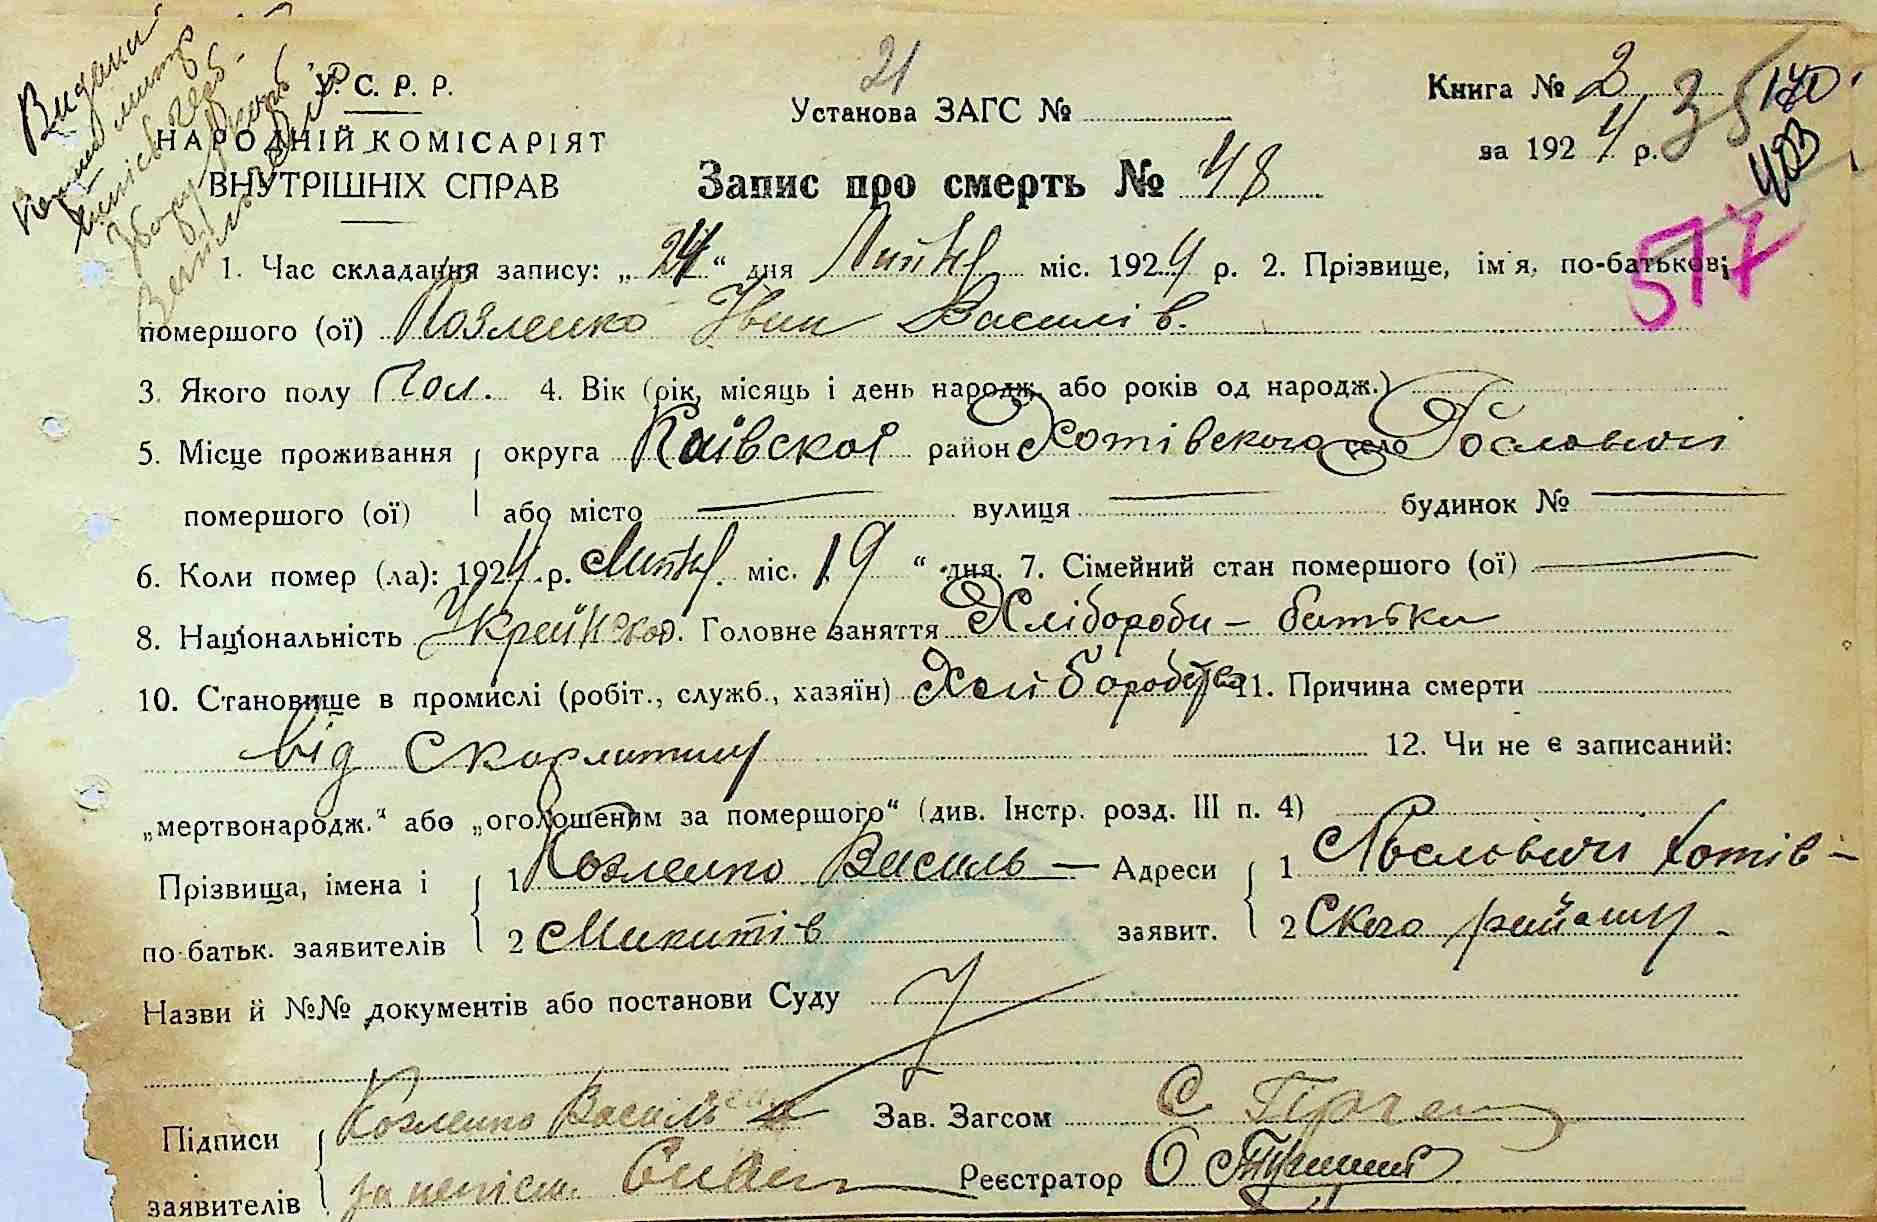 Видані
У. С. Р. Р.
НАРОДНІЙ КОМІСАРІЯТ
ВНУТРІШНІХ СПРАВ
21
Установа ЗАГС №
Книга № 2
35
140
за 1924 р.
483
517
Запис про смерть № 48
1. Час складання запису: „24“ дня Липня міс. 1924 р. 2. Прізвище, ім'я, по-батькові
помершого (ої) Козленко Іван Василів.
3. Якого полу Чол. 4. Вік (рік, місяць і день народж. або років од народж.)
5. Місце проживання округа Київской район Хотівского село Гословичі
помершого (ої) або місто — вулиця — будинок № —
6. Коли помер (ла): 1924 р. Липня міс. 19 “ дня. 7. Сімейний стан помершого (ої) —
8. Національність Українской. Головне заняття Хлібороби - батьки
10. Становище в промислі (робіт., служб., хазяїн) Хлібороб 11. Причина смерти
від Скарлатини 12. Чи не є записаний:
„мертвонародж.“ або „оголошеним за помершого“ (див. Інстр. розд. III п. 4)
Прізвища, імена і 1 Козленко Василь — Адреси 1 Гословичі Хотів-
по батьк. заявителів 2 Микитів заявит. 2 Ского району -
Назви й №№ документів або постанови Суду
Підписи Козленко Василь Зав. Загсом С
заявителів Реєстратор